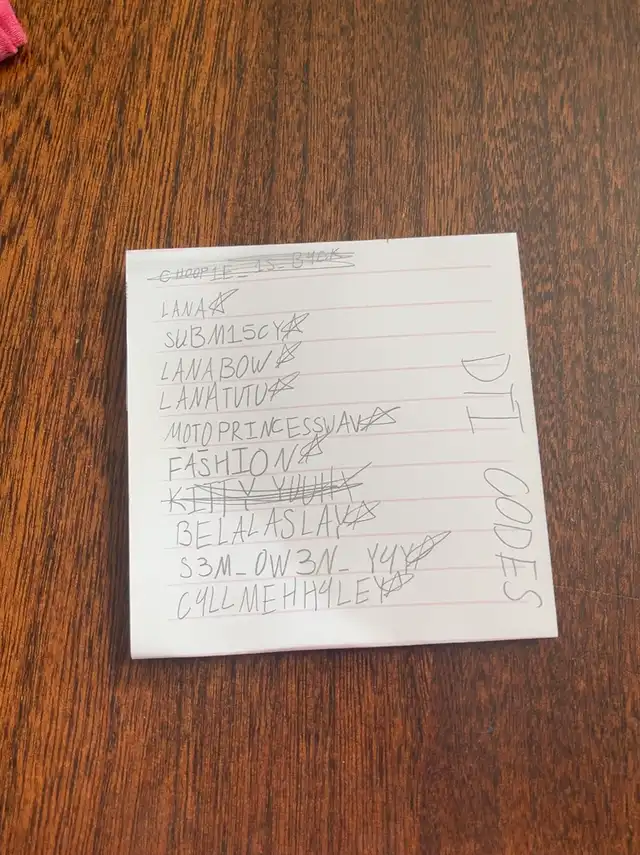 CHOOP1E_1S_B4CK
LANA☆
SUBM15CY☆
LANABOW☆
LANATUTU☆
MOTOPRINCESSWAV☆
FASHION☆
BELALASLAY☆
S3M_0W3N_Y4Y☆
C4LLMEHH4LEY☆
DTI CODES